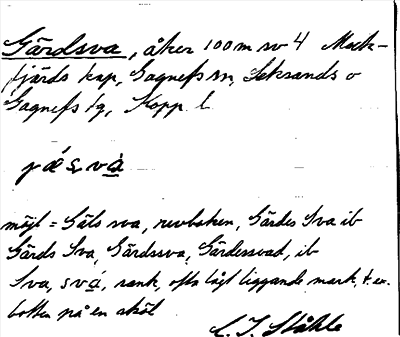 Gärdsva, åker 100 m sv 4 Mock-
fjärds kap, Gagnefs sn, Leksands o
Gagnefs tg, Kopp. l.
jæ̀svà
möjl = Gäls sva, revboken, Gärdes Sva ib
Gärds Sva, Gärdssva, Gärdessvad, ib
Sva, svá, sank, ofta lågt liggande mark, t. ex.
botten på en sköl
C. I. Ståhle